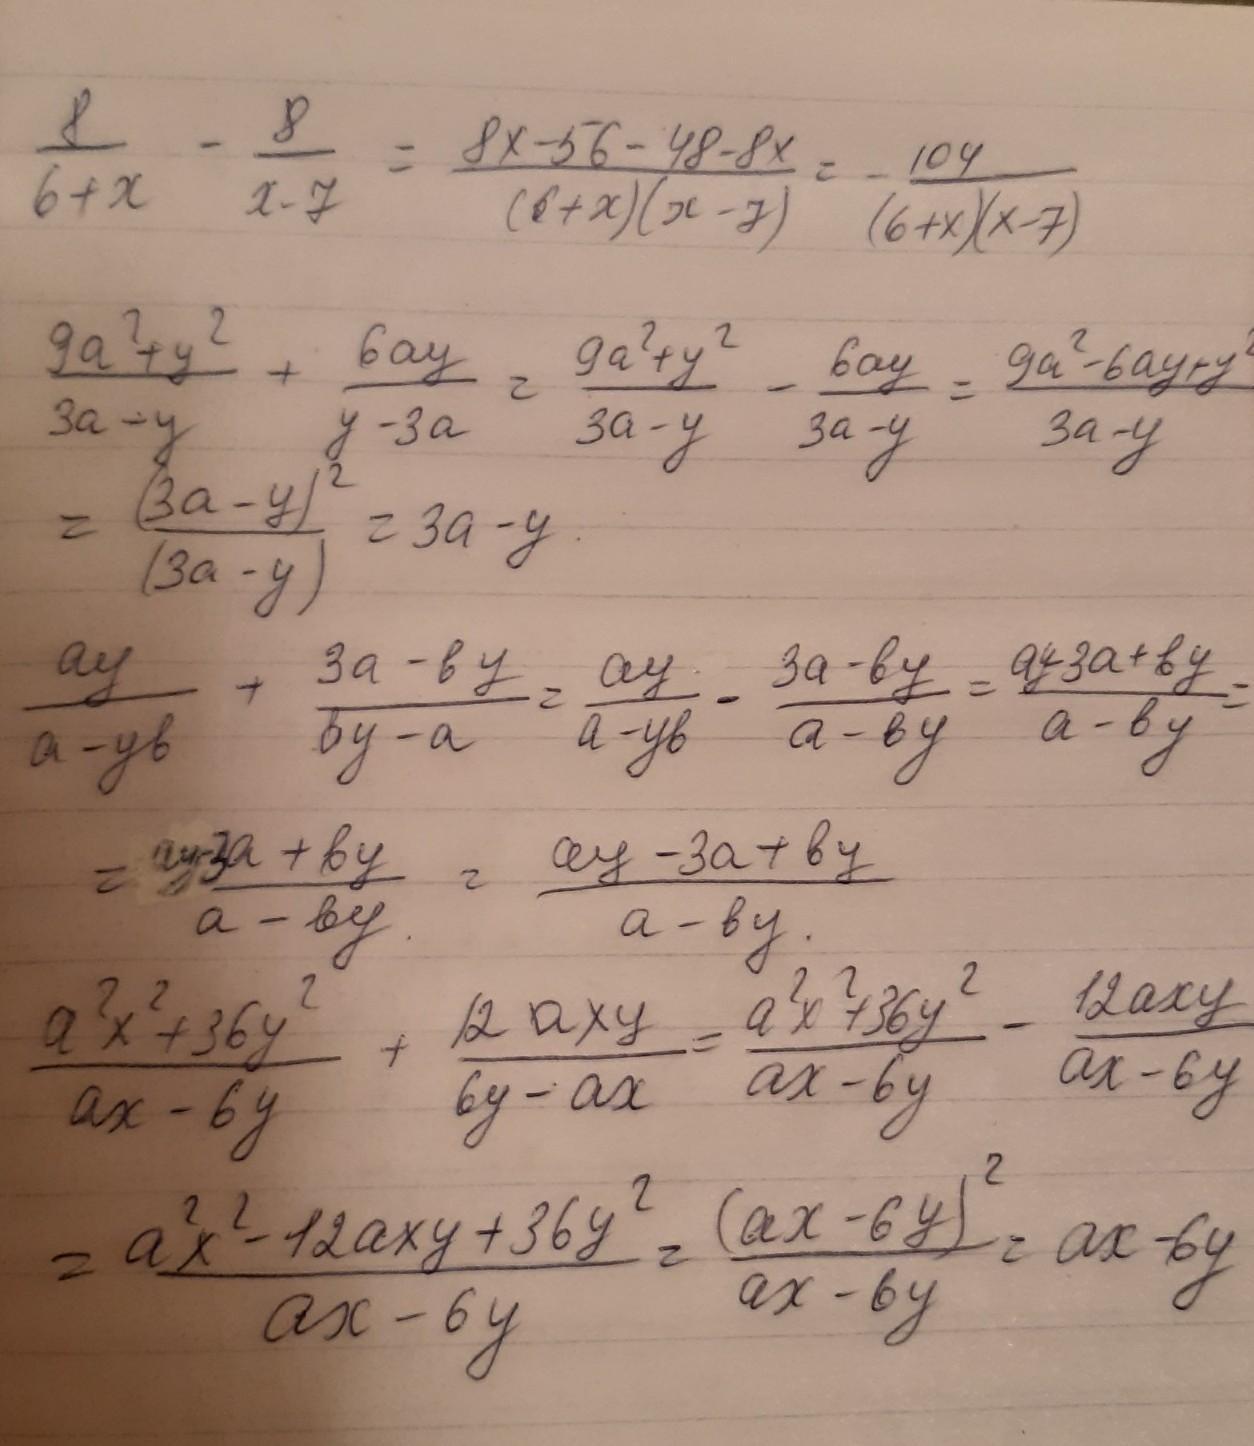 8/(6+x) - 8/(x-7) = (8x-56-48-8x)/((6+x)(x-7)) = -104/((6+x)(x-7))
(9a²+y²)/(3a-y) + 6ay/(y-3a) = (9a²+y²)/(3a-y) - 6ay/(3a-y) = (9a²-6ay+y²)/(3a-y)
= (3a-y)²/(3a-y) = 3a-y.
ay/(a-yb) + (3a-by)/(by-a) = ay/(a-yb) - (3a-by)/(a-by) = (ay-3a+by)/(a-by) =
= (ay-3a+by)/(a-by). = (ay-3a+by)/(a-by).
(a²x²+36y²)/(ax-6y) + 12axy/(6y-ax) = (a²x²+36y²)/(ax-6y) - 12axy/(ax-6y)
= (a²x²-12axy+36y²)/(ax-6y) = (ax-6y)²/(ax-6y) = ax-6y